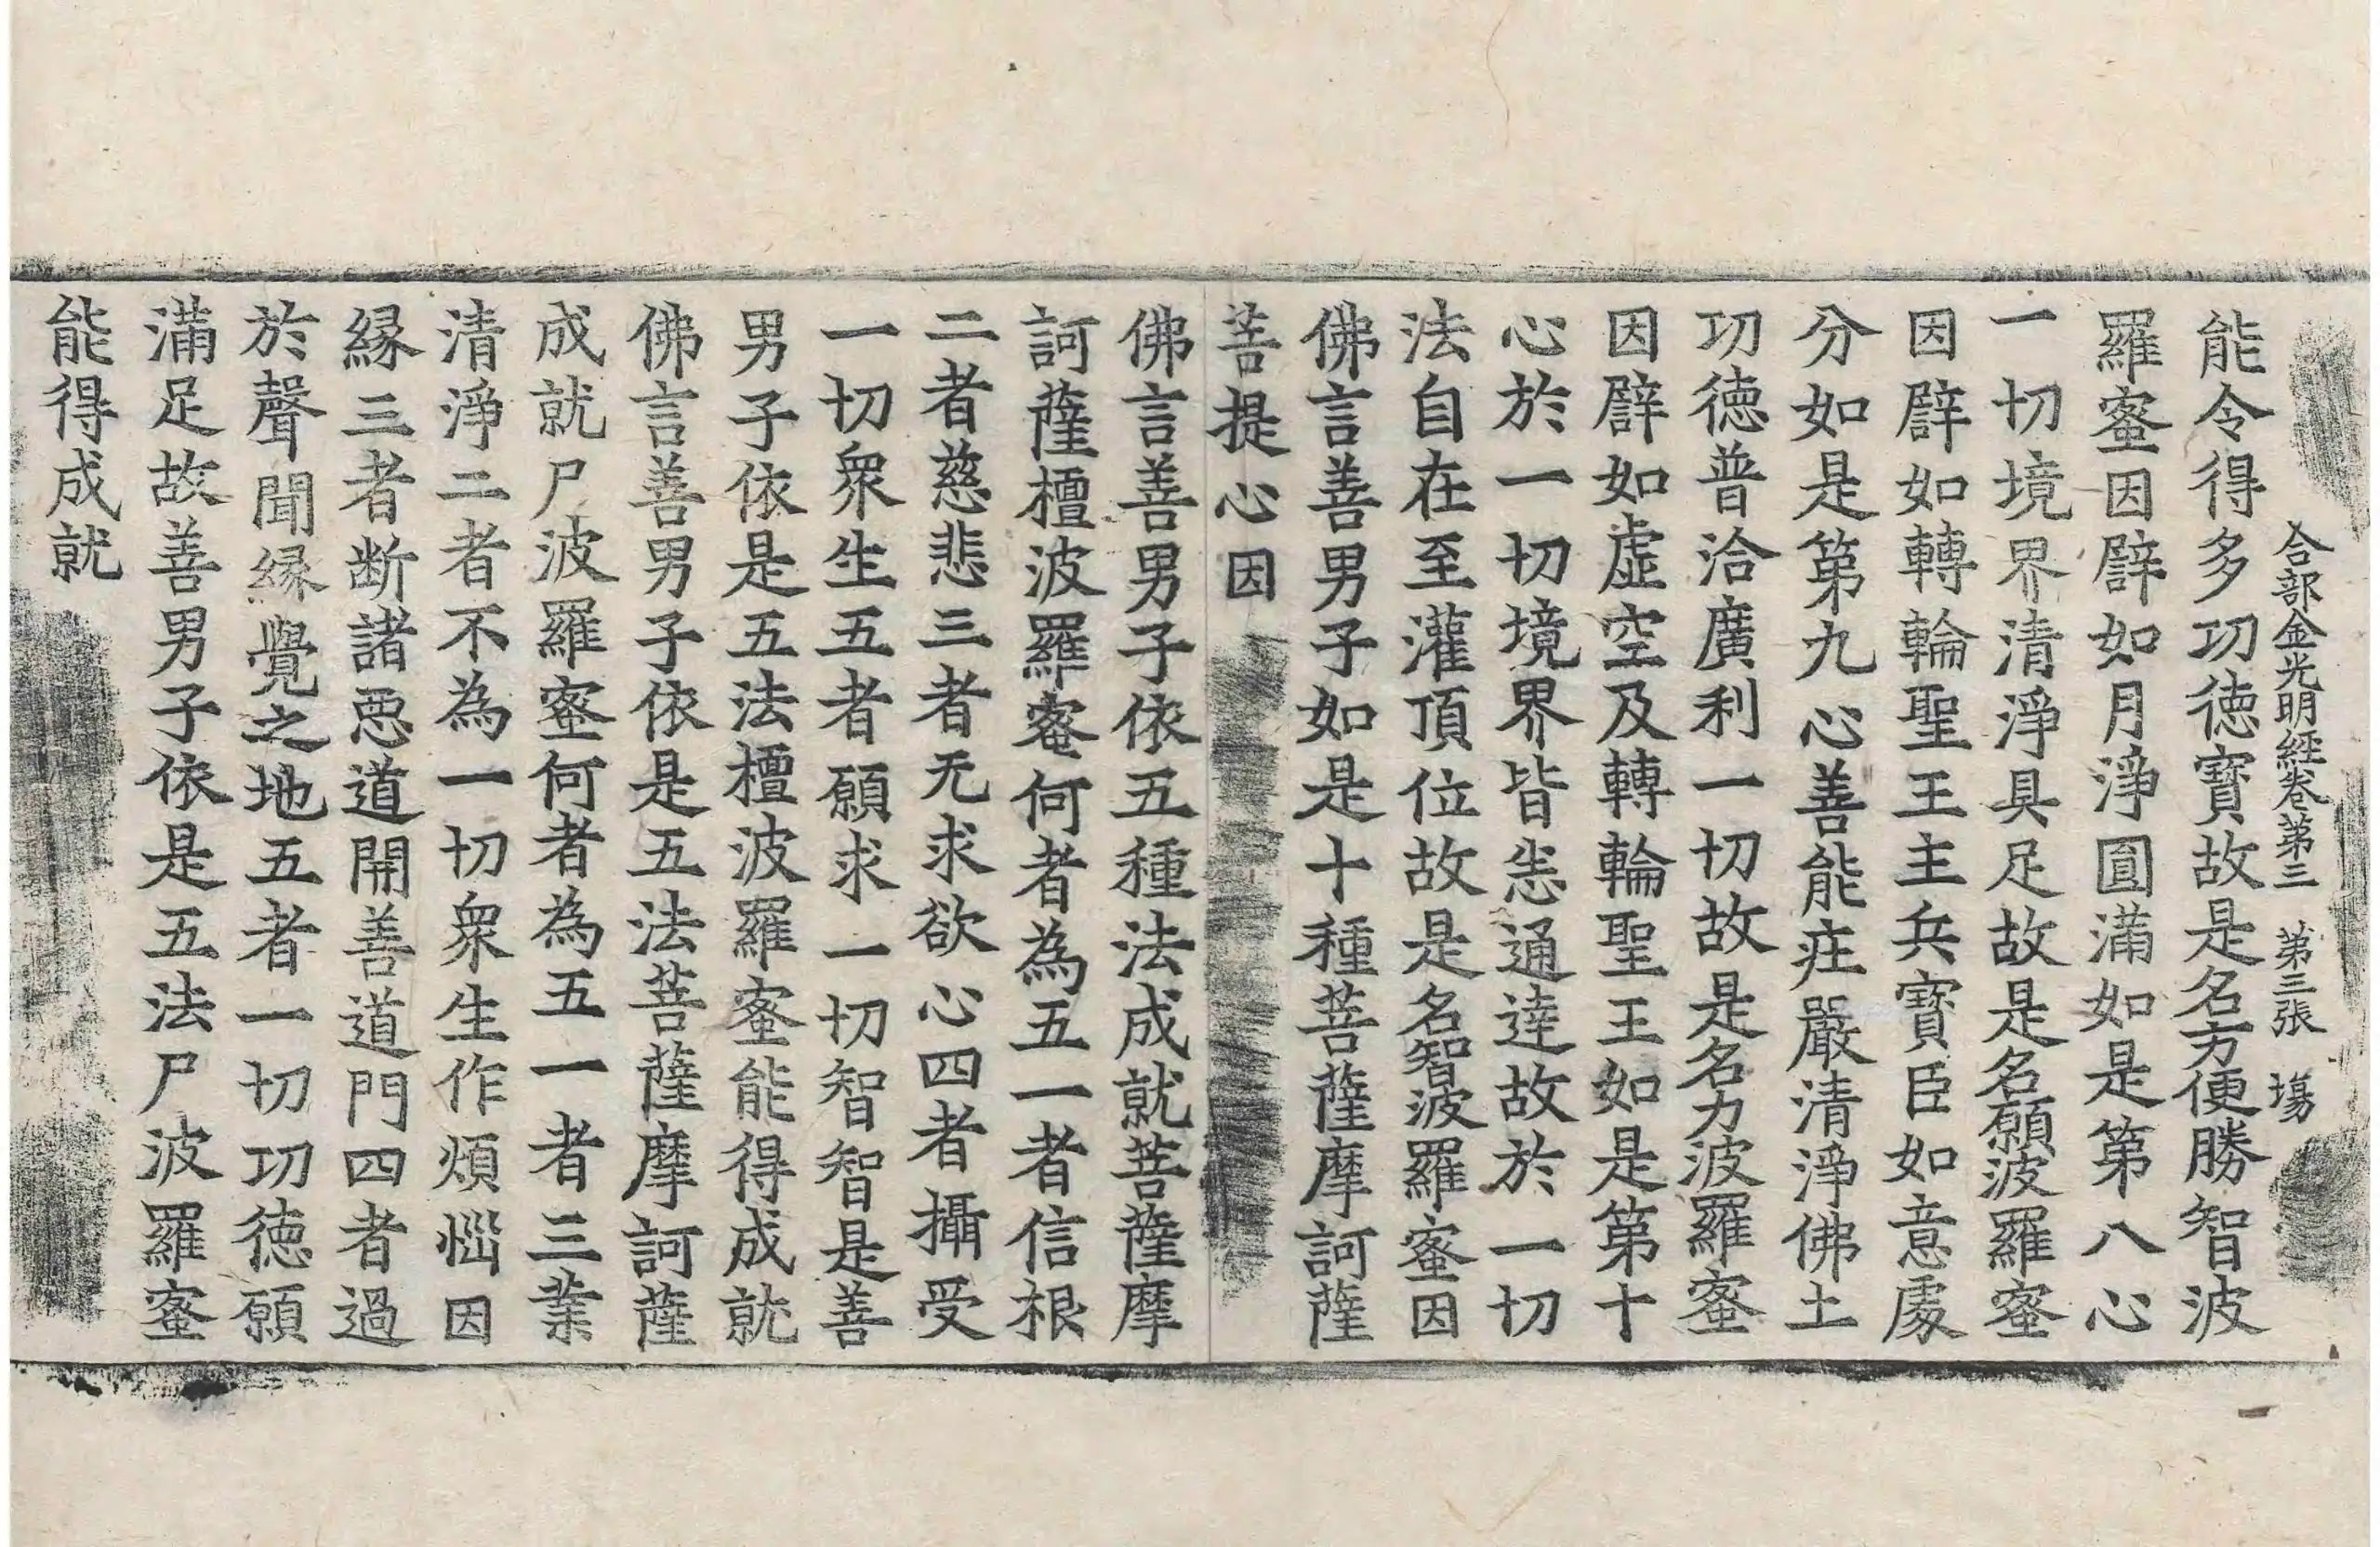 合部金光明經卷第三 第三張 塲
能令得多功徳寶故是名方便勝智波
羅蜜因辟如月淨圓滿如是第八心
一切境界清淨具足故是名願波羅蜜
因辟如轉輪聖王主兵寶臣如意處
分如是第九心善能庄嚴清淨佛土
功徳普洽廣利一切故是名力波羅蜜
因辟如虛空及轉輪聖王如是第十
心於一切境界皆悉通達故於一切
法自在至灌頂位故是名智波羅蜜因
佛言善男子如是十種菩薩摩訶薩
菩提心因
佛言善男子依五種法成就菩薩摩
訶薩檀波羅蜜何者為五一者信根
二者慈悲三者无求欲心四者攝受
一切衆生五者願求一切智智是善
男子依是五法檀波羅蜜能得成就
佛言善男子依是五法菩薩摩訶薩
成就尸波羅蜜何者為五一者三業
清淨二者不為一切衆生作煩惱因
緣三者断諸惡道開善道門四者過
於聲聞緣覺之地五者一切功徳願
滿足故善男子依是五法尸波羅蜜
能得成就